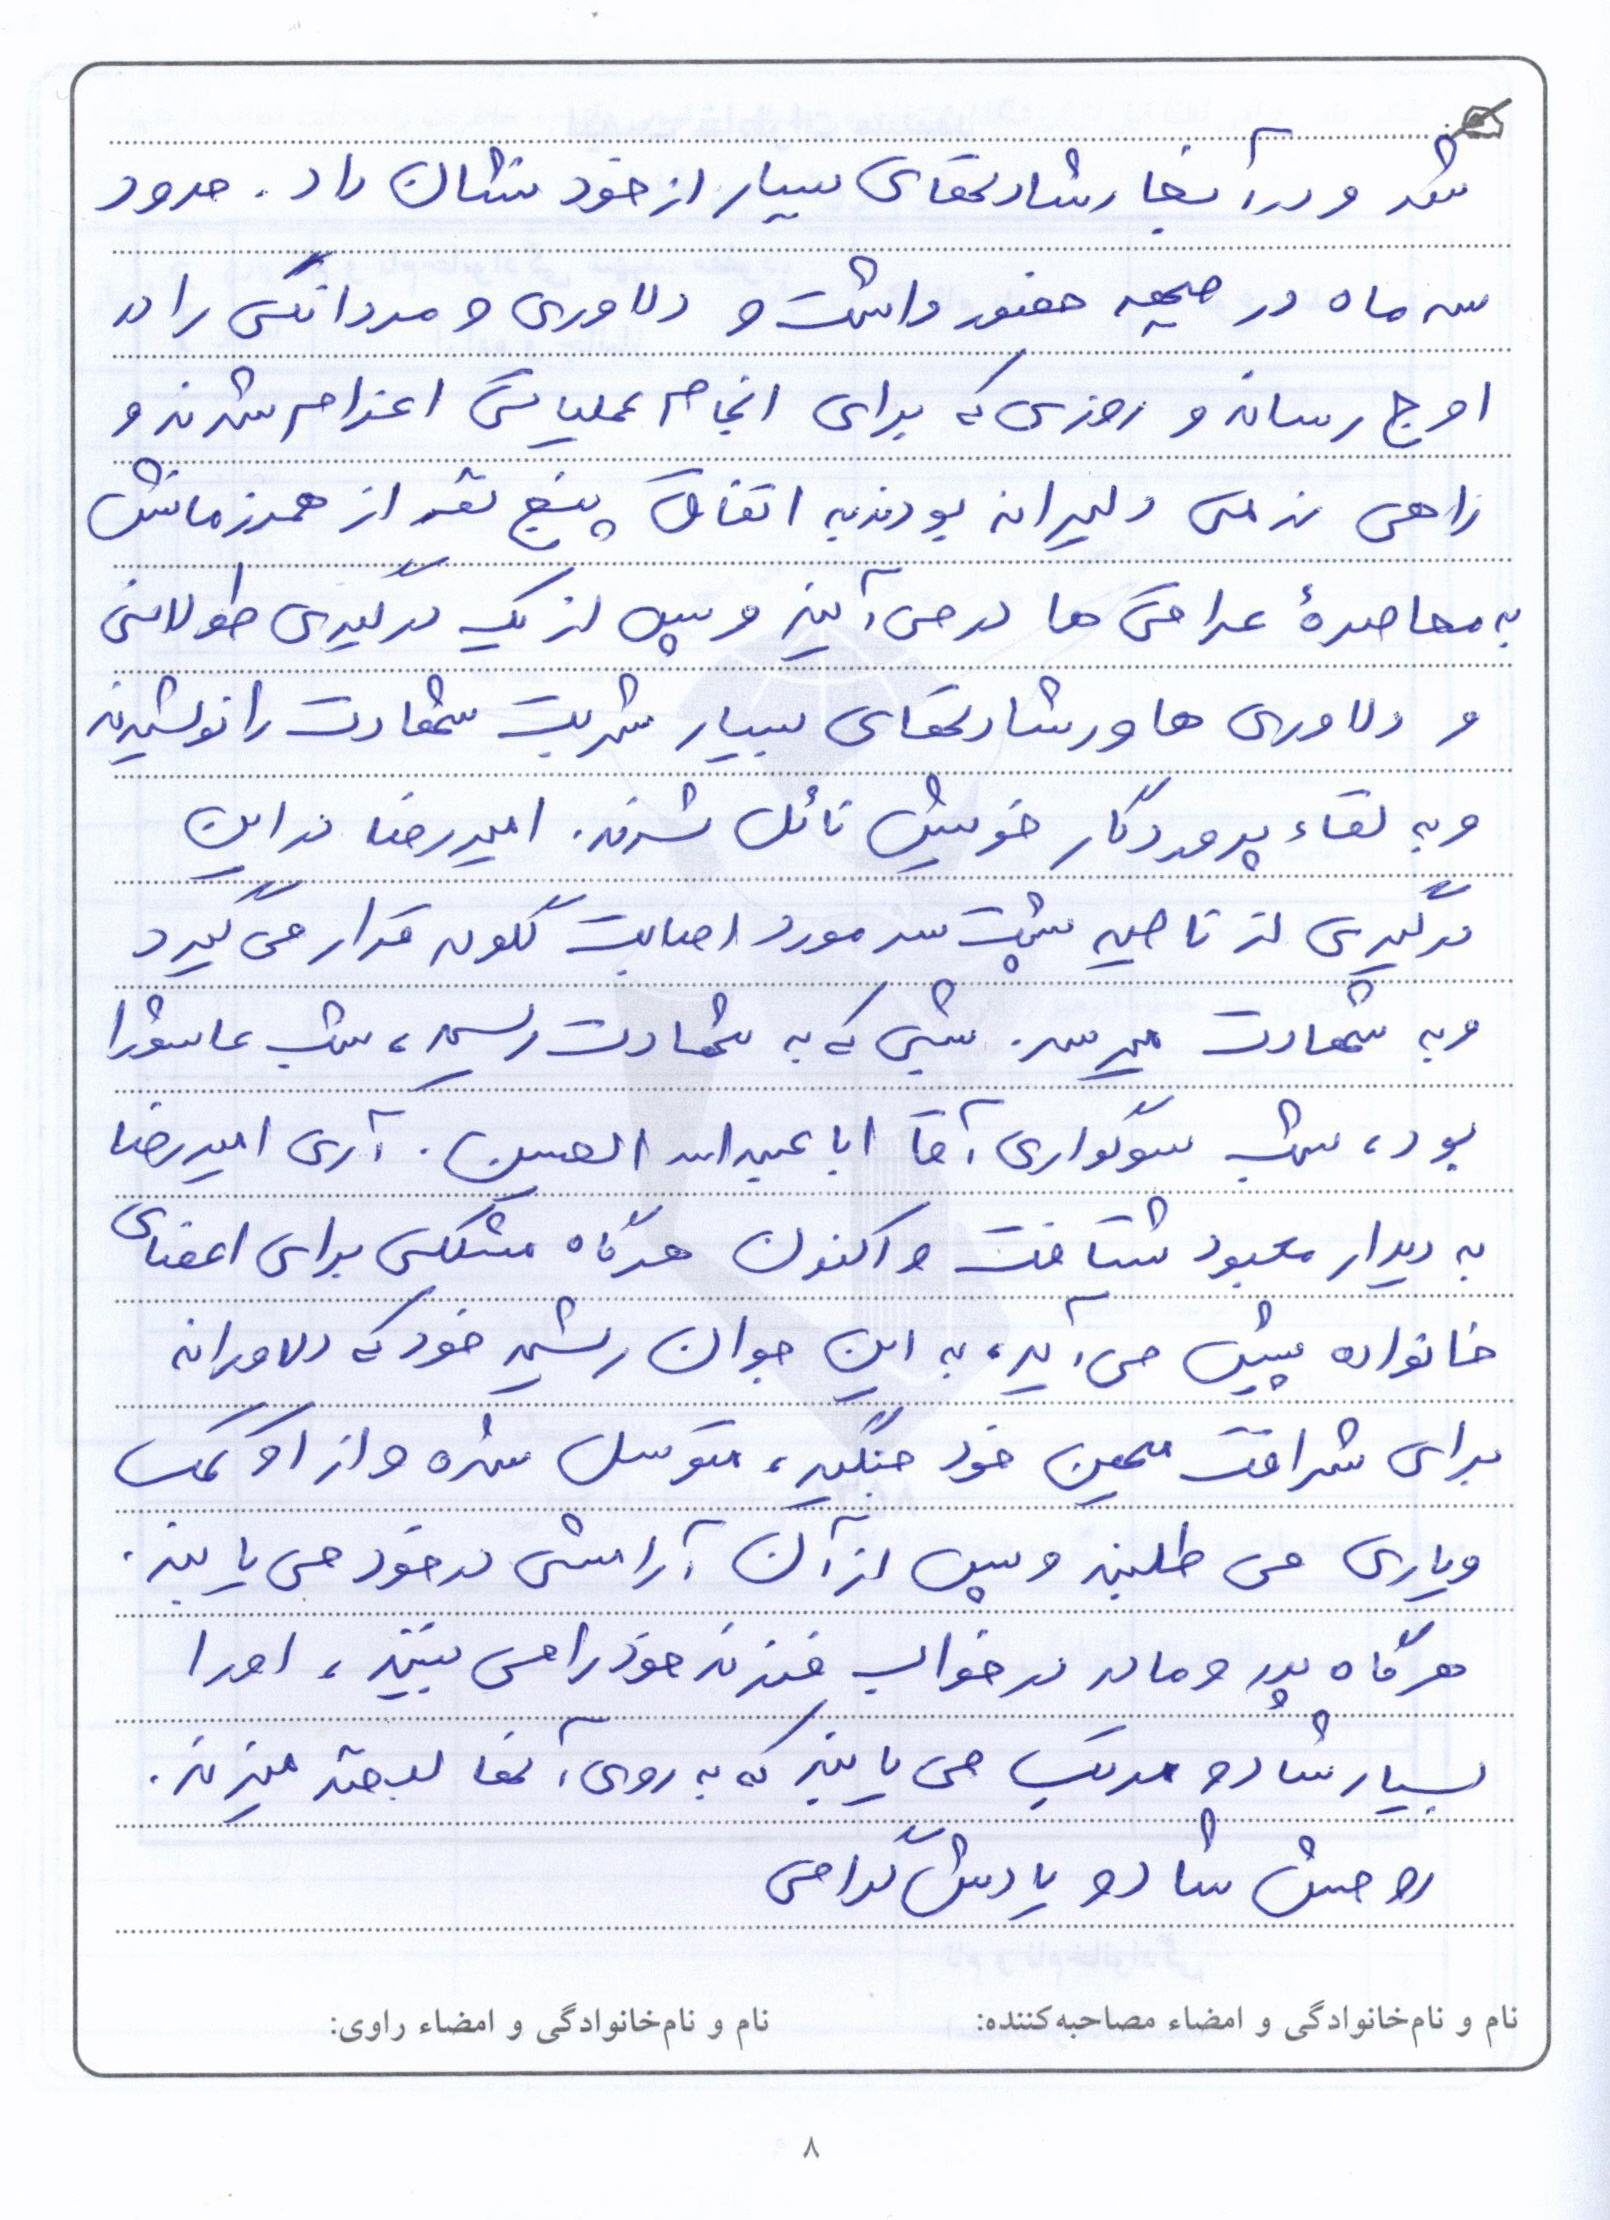 شد و در آنجا رشادتهای بسیار از خود نشان داد. حدود
سه ماه در جبهه حضور داشت و دلاوری و مردانگی را در
اوج رساند و روزی که برای انجام عملیاتی اعزام شدند و
راهی نزمی دلیرانه بودند به اتفاق پنج نفر از همرزمانش
به محاصرهٔ عراقی ها در می آیند و پس از یک درگیری طولانی
و دلاوری ها و رشادتهای بسیار شربت شهادت را نوشیدند
و به لقاء پروردگار خویش نائل شدند. امیررضا در این
درگیری از ناحیه پشت سر مورد اصابت گلوله قرار می گیرد
و به شهادت میرسد. شبی که به شهادت رسید، شب عاشورا
بود، شب سوگواری آقا ابا عبداله الحسین. آری امیررضا
به دیدار معبود شتافت و اکنون هرگاه مشکلی برای اعضای
خانواده پیش می آید، به این جوان رشید خود که دلاورانه
برای شرافت میهن خود جنگید، متوسل شده و از او کمک
و یاری می طلبند و پس از آن آرامشی در خود می یابند.
هرگاه پدر و مادر در خواب فرزند خود را می بینند، او را
بسیار شاد و مرتب می یابند که به روی آنها لبخند میزند.
روحش شاد و یادش گرامی
نام و نام‌خانوادگی و امضاء مصاحبه‌کننده: نام و نام‌خانوادگی و امضاء راوی:
۸